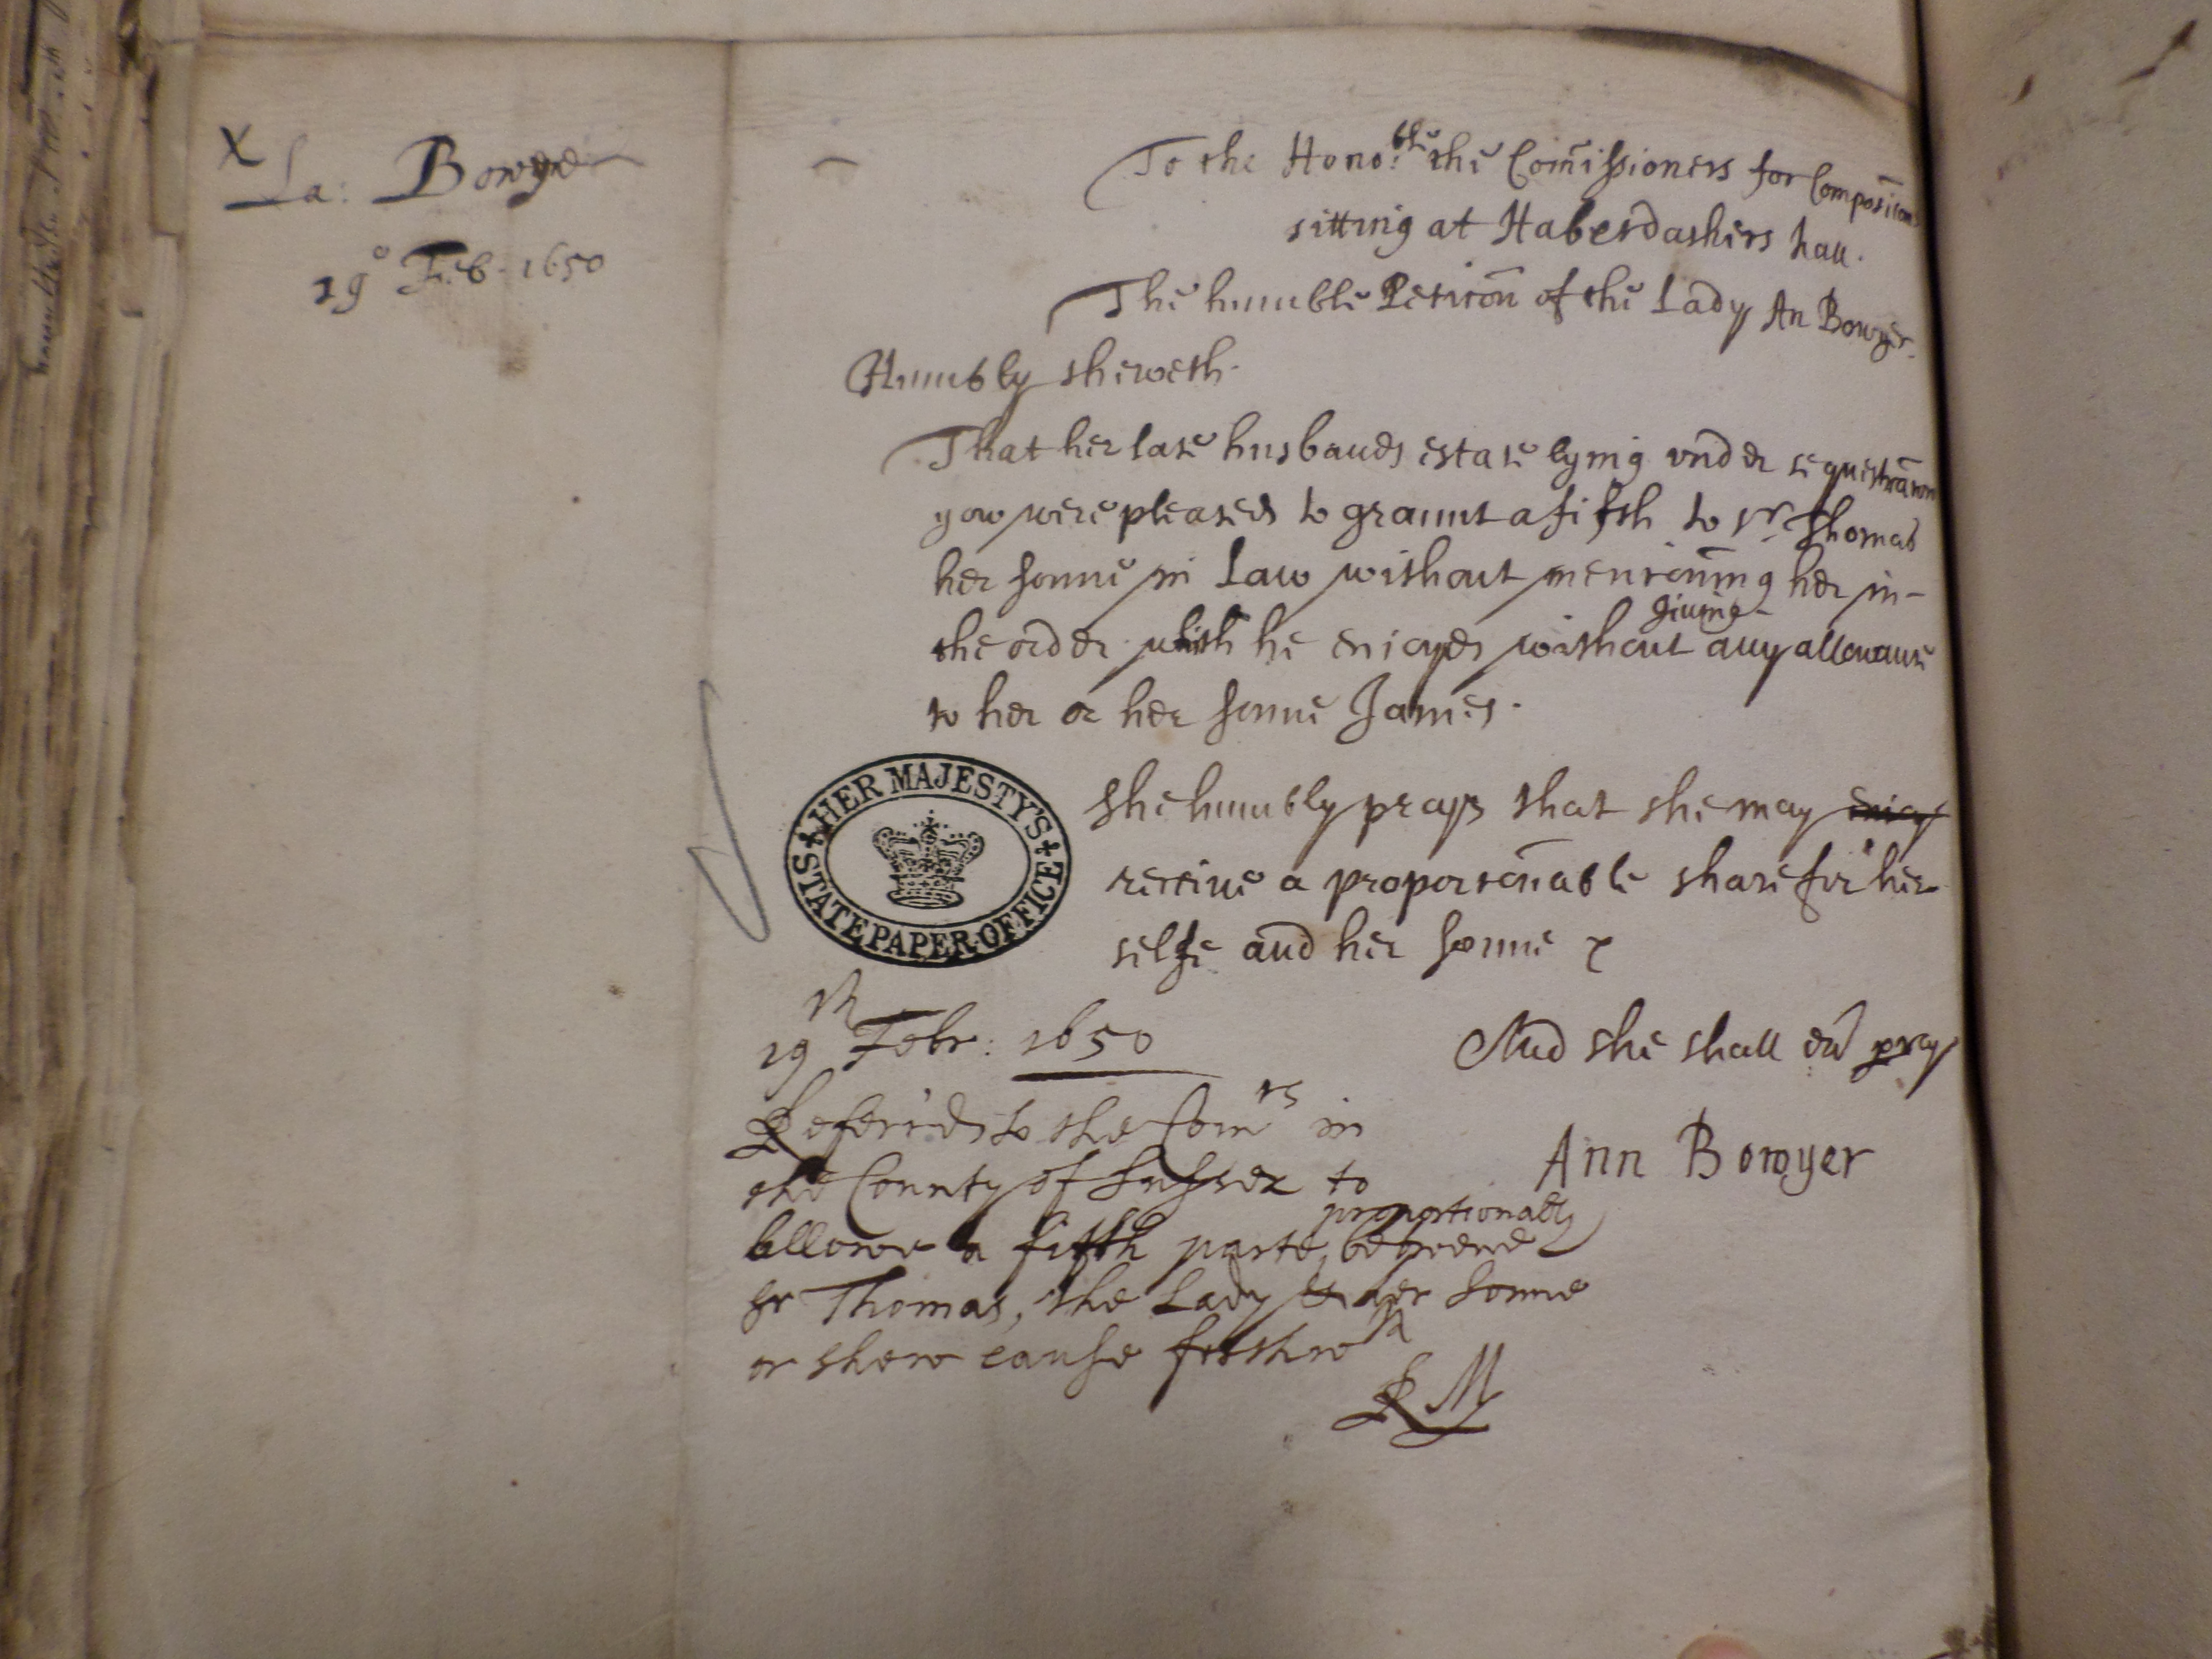 X
La: Bowyer
19° Feb. 1650
To the Hono:ble the Com̄issioners for Composic̄on
sitting at Haberdashers hall.
The humble Petic̄on of the Lady An Bowyer.
Humbly sheweth.
That her late husbands estate lying vnder sequestrac̄on
yow were pleased to graunt a fifth to Sr. Thomas
her sonne in Law without menc̄oning her in-
the order which he enioyes without giuing any allowance
to her or her sonne James.
She humbly prays that she may enioy
receiue a proporc̄onable share for her
selfe and her sonne
And she shall eū pray
Ann Bowyer
HER MAJESTY'S STATE PAPER OFFICE
19th Febr: 1650
Referred to the Comrs in
the County of Sussex to
allowe a fifth parte, proportionally betweene
Sr Thomas, the Lady & her sonne
or shew cause forthwth
RM